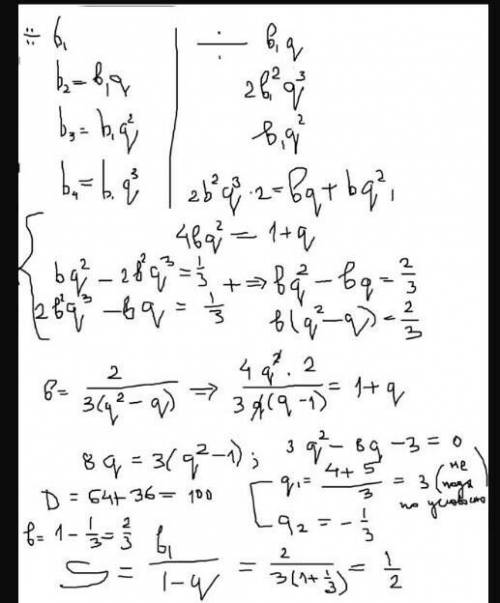 ÷ b₁
b₂ = b₁q
b₃ = b₁q²
b₄ = b₁q³
÷ b₁q
2b₁²q³
b₁q²
2b²q³·2 = bq + bq²,
4bq² = 1+q
bq² − 2b²q³ = 1/3
2b²q³ − bq = 1/3
+ ⇒ bq² − bq = 2/3
b(q² − q) = 2/3
b = 2/(3(q² − q)) ⇒ (4q² · 2)/(3q(q−1)) = 1+q
8q = 3(q²−1); 3q² − 8q − 3 = 0
D = 64+36 = 100
q₁ = (4+5)/3 = 3 (не подх по условию
q₂ = −1/3
b = 1 − 1/3 = 2/3
S = b₁/(1−q) = 2/(3(1+1/3)) = 1/2